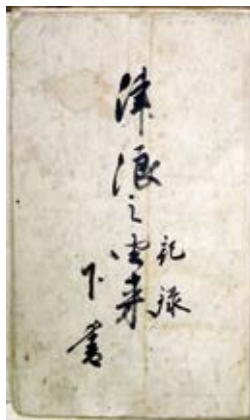 津浪之由来
記録
下書